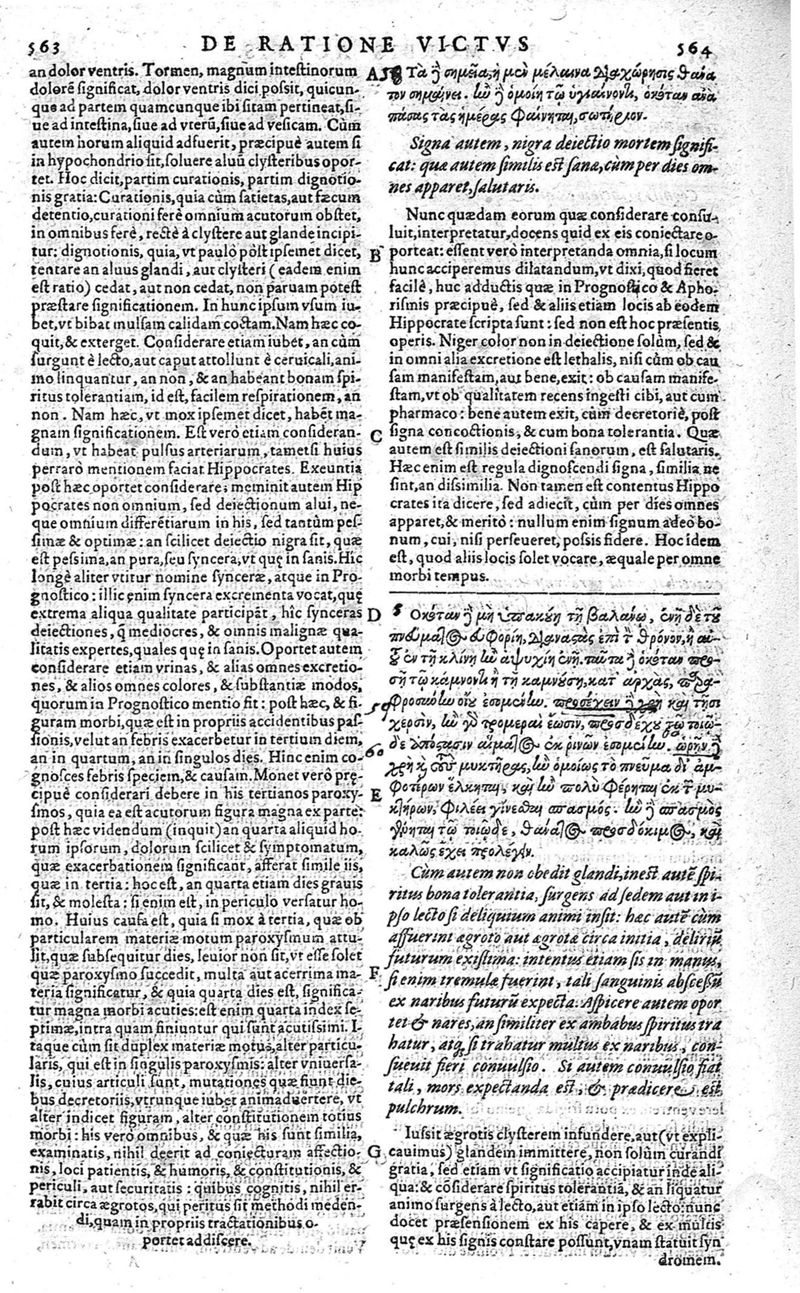 563 DE RATIONE VICTVS 564
an dolor ventris. Tormen, magnum intestinorum
dolorē significat, dolor ventris dici possit, quicun-
que ad partem quamcunque ibi sitam pertineat, si-
ue ad intestina, siue ad vterū, siue ad vesicam. Cùm
autem horum aliquid adfuerit, præcipuè autem si
in hypochondrio sit, soluere aluū clysteribus opor-
tet. Hoc dicit, partim curationis, partim dignotio-
nis gratia: Curationis, quia cùm satietas, aut fæcum
detentio, curationi ferè omnium acutorum obstet,
in omnibus ferè, rectè à clystere aut glande incipi-
tur: dignotionis, quia, vt paulò pòst ipsemet dicet,
tentare an aluus glandi, aut clysteri (eadem enim
est ratio) cedat, aut non cedat, non paruam potest
præstare significationem. In hunc ipsum vsum iu-
bet, vt bibat mulsam calidam coctam. Nam hæc co-
quit, & exterget. Considerare etiam iubet, an cùm
surgunt è lecto, aut caput attollunt è ceruicali, ani-
mo linquantur, an non, & an habeant bonam spi-
ritus tolerantiam, id est, facilem respirationem, an
non. Nam hæc, vt mox ipsemet dicet, habēt ma-
gnam significationem. Est verò etiam consideran-
dum, vt habeat pulsus arteriarum, tametsi huius
perrarò mentionem faciat Hippocrates. Exeuntia
post hæc oportet considerare: meminit autem Hip
pocrates non omnium, sed deiectionum alui, ne-
que omnium differētiarum in his, sed tantùm pes-
simæ & optimæ: an scilicet deiectio nigra sit, quæ
est pessima, an pura, seu syncera, vt quę in sanis. Hîc
longè aliter vtitur nomine synceræ, atque in Pro-
gnostico: illîc enim syncera excrementa vocat, quę
extrema aliqua qualitate participāt, hîc synceras
deiectiones, q̃ mediocres, & omnis malignæ qua-
litatis expertes, quales quę in sanis. Oportet autem
considerare etiam vrinas, & alias omnes excretio-
nes, & alios omnes colores, & substantiæ modos,
quorum in Prognostico mentio fit: post hæc, & fi-
guram morbi, quæ est in propriis accidentibus pas-
sionis, velut an febris exacerbetur in tertium diem,
an in quartum, an in singulos dies. Hinc enim co-
gnosces febris speciem, & causam. Monet verò prę-
cipuè considerari debere in his tertianos paroxy-
smos, quia ea est acutorum figura magna ex parte:
post hæc videndum (inquit) an quarta aliquid ho-
rum ipsorum, dolorum scilicet & symptomatum,
quæ exacerbationem significant, afferat simile iis,
quæ in tertia: hoc est, an quarta etiam dies grauis
sit, & molesta: si enim est, in periculo versatur ho-
mo. Huius causa est, quia si mox à tertia, quæ ob
particularem materiæ motum paroxysmum attu-
lit, quæ subsequitur dies, leuior non sit, vt esse solet
quæ paroxysmo succedit, multa aut acerrima ma-
teria significatur, & quia quarta dies est, significa-
tur magna morbi acuties: est enim quarta index se-
ptimæ, intra quam finiuntur qui sunt acutissimi. I-
taque cùm sit duplex materiæ motus, alter particu-
laris, qui est in singulis paroxysmis: alter vniuersa-
lis, cuius articuli sunt, mutationes quæ fiunt die-
bus decretoriis, vtrunque iubet animaduertere, vt
alter indicet figuram, alter constitutionem totius
morbi: his verò omnibus, & quæ his sunt similia,
examinatis, nihil deerit ad coniecturam affectio-
nis, loci patientis, & humoris, & constitutionis, &
periculi, aut securitatis: quibus cognitis, nihil er-
rabit circa ægrotos, qui peritus sit methodi meden-
di, quam in propriis tractationibus o-
portet addiscere.
A
B
C
D
E
F
G
58
59
60
Τὰ ἢ σημεῖα, ἡ μὲν μέλαινα διαχώρησις θάνα
τον σημαίνει. ἢν ἢ ὁμοίη τῷ ὑγιαίνοντι, ὁκόταν ἀνὰ
πάσας τὰς ἡμέρας φαίνηται, σωτήριον.
Signa autem, nigra deiectio mortem signifi-
cat: quæ autem similis est sanæ, cùm per dies om-
nes apparet, salutaris.
Nunc quædam eorum quæ considerare consu-
luit, interpretatur, docens quid ex eis coniectare o-
porteat: essent verò interpretanda omnia, si locum
hunc acciperemus dilatandum, vt dixi, quod fieret
facilè, huc adductis quæ in Prognostico & Apho-
rismis præcipuè, sed & aliis etiam locis ab eodem
Hippocrate scripta sunt: sed non est hoc præsentis
operis. Niger color non in deiectione solùm, sed &
in omni alia excretione est lethalis, nisi cùm ob cau
sam manifestam, aut bene, exit: ob causam manife-
stam, vt ob qualitatem recens ingesti cibi, aut cum
pharmaco: bene autem exit, cùm decretoriè, post
signa concoctionis, & cum bona tolerantia. Quæ
autem est similis deiectioni sanorum, est salutaris.
Hæc enim est regula dignoscendi signa, similia ne
sint, an dissimilia. Non tamen est contentus Hippo
crates ita dicere, sed adiecit, cùm per dies omnes
apparet, & meritò: nullum enim signum adeò bo-
num, cui, nisi perseueret, possis fidere. Hoc idem
est, quod aliis locis solet vocare, æquale per omne
morbi tempus.
Ὁκόταν ἢ μὴ ὑπακούῃ τῇ βαλάνῳ, ἐνῇ δὲ τοῦ
πνεύματος εὐφορίη, διαναστὰς ἐπὶ τὸν θρόνον, ἢ αὐ-
τοῦ ἐν τῇ κλίνῃ ἢν ἀψυχίη ἐνῇ. ταῦτα ἢ ὁκόταν προ-
σῇ τῷ κάμνοντι ἢ τῇ καμνούσῃ, κατ᾽ ἀρχὰς, παρα-
φροσύνην οἴου ἐσομένην. προσέχειν ἢ χρὴ καὶ τῇσι
χερσὶν, ἢν γὰρ τρομεραὶ ἔωσιν, προσδέχου τῷ τοιῷ-
δε ἀπόστασιν αἵματος ἐκ ῥινῶν ἐσομένην. ὁρῆν ἢ
χρὴ καὶ τοὺς μυκτῆρας, ἢν ὁμοίως τὸ πνεῦμα δι᾽ ἀμ-
φοτέρων ἕλκηται, καὶ ἢν πολὺ φέρηται ἐκ τῶν μυ-
κτήρων, φιλέει γίνεσθαι σπασμός. ἢν ἢ σπασμὸς
γένηται τῷ τοιῷδε, θάνατος προσδόκιμος, καὶ
καλῶς ἔχει προλέγειν.
Cùm autem non obedit glandi, inest autē spi-
ritus bona tolerantia, surgens ad sedem aut in i-
pso lecto si deliquium animi insit: hæc autē cùm
affuerint ægroto aut ægrotæ circa initia, deliriū
futurum existima: intentus etiam sis in manus,
si enim tremulæ fuerint, tali sanguinis abscessū
ex naribus futurū expecta. Aspicere autem opor
tet & nares, an similiter ex ambabus spiritus tra
hatur, atq; si trahatur multus ex naribus, con-
sueuit fieri conuulsio. Si autem conuulsio fiat
tali, mors expectanda est, & prædicere est
pulchrum.
Iussit ægrotis clysterem infundere, aut (vt expli-
cauimus) glandem immittere, non solùm curandi
gratia, sed etiam vt significatio accipiatur inde ali-
qua: & cōsiderare spiritus tolerātiā, & an liquatur
animo surgens à lecto, aut etiam in ipso lecto: nunc
docet præsensionem ex his capere, & ex multis
quę ex his signis constare possunt, vnam statuit syn
dromem.